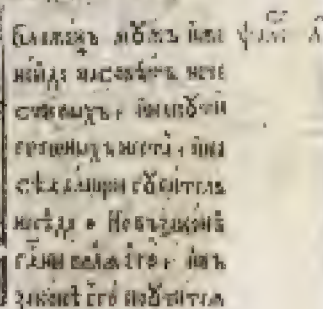 Блаженъ мꙋжъ иже
неиде насовѣтъ нече
стивыхъ, инапꙋти
грешныхъ неста, ина
сѣдалищи гꙋбитель
несѣде. Новъзаконѣ
гн҃и волѧ его, ивъ
законѣ его поꙋчитсѧ